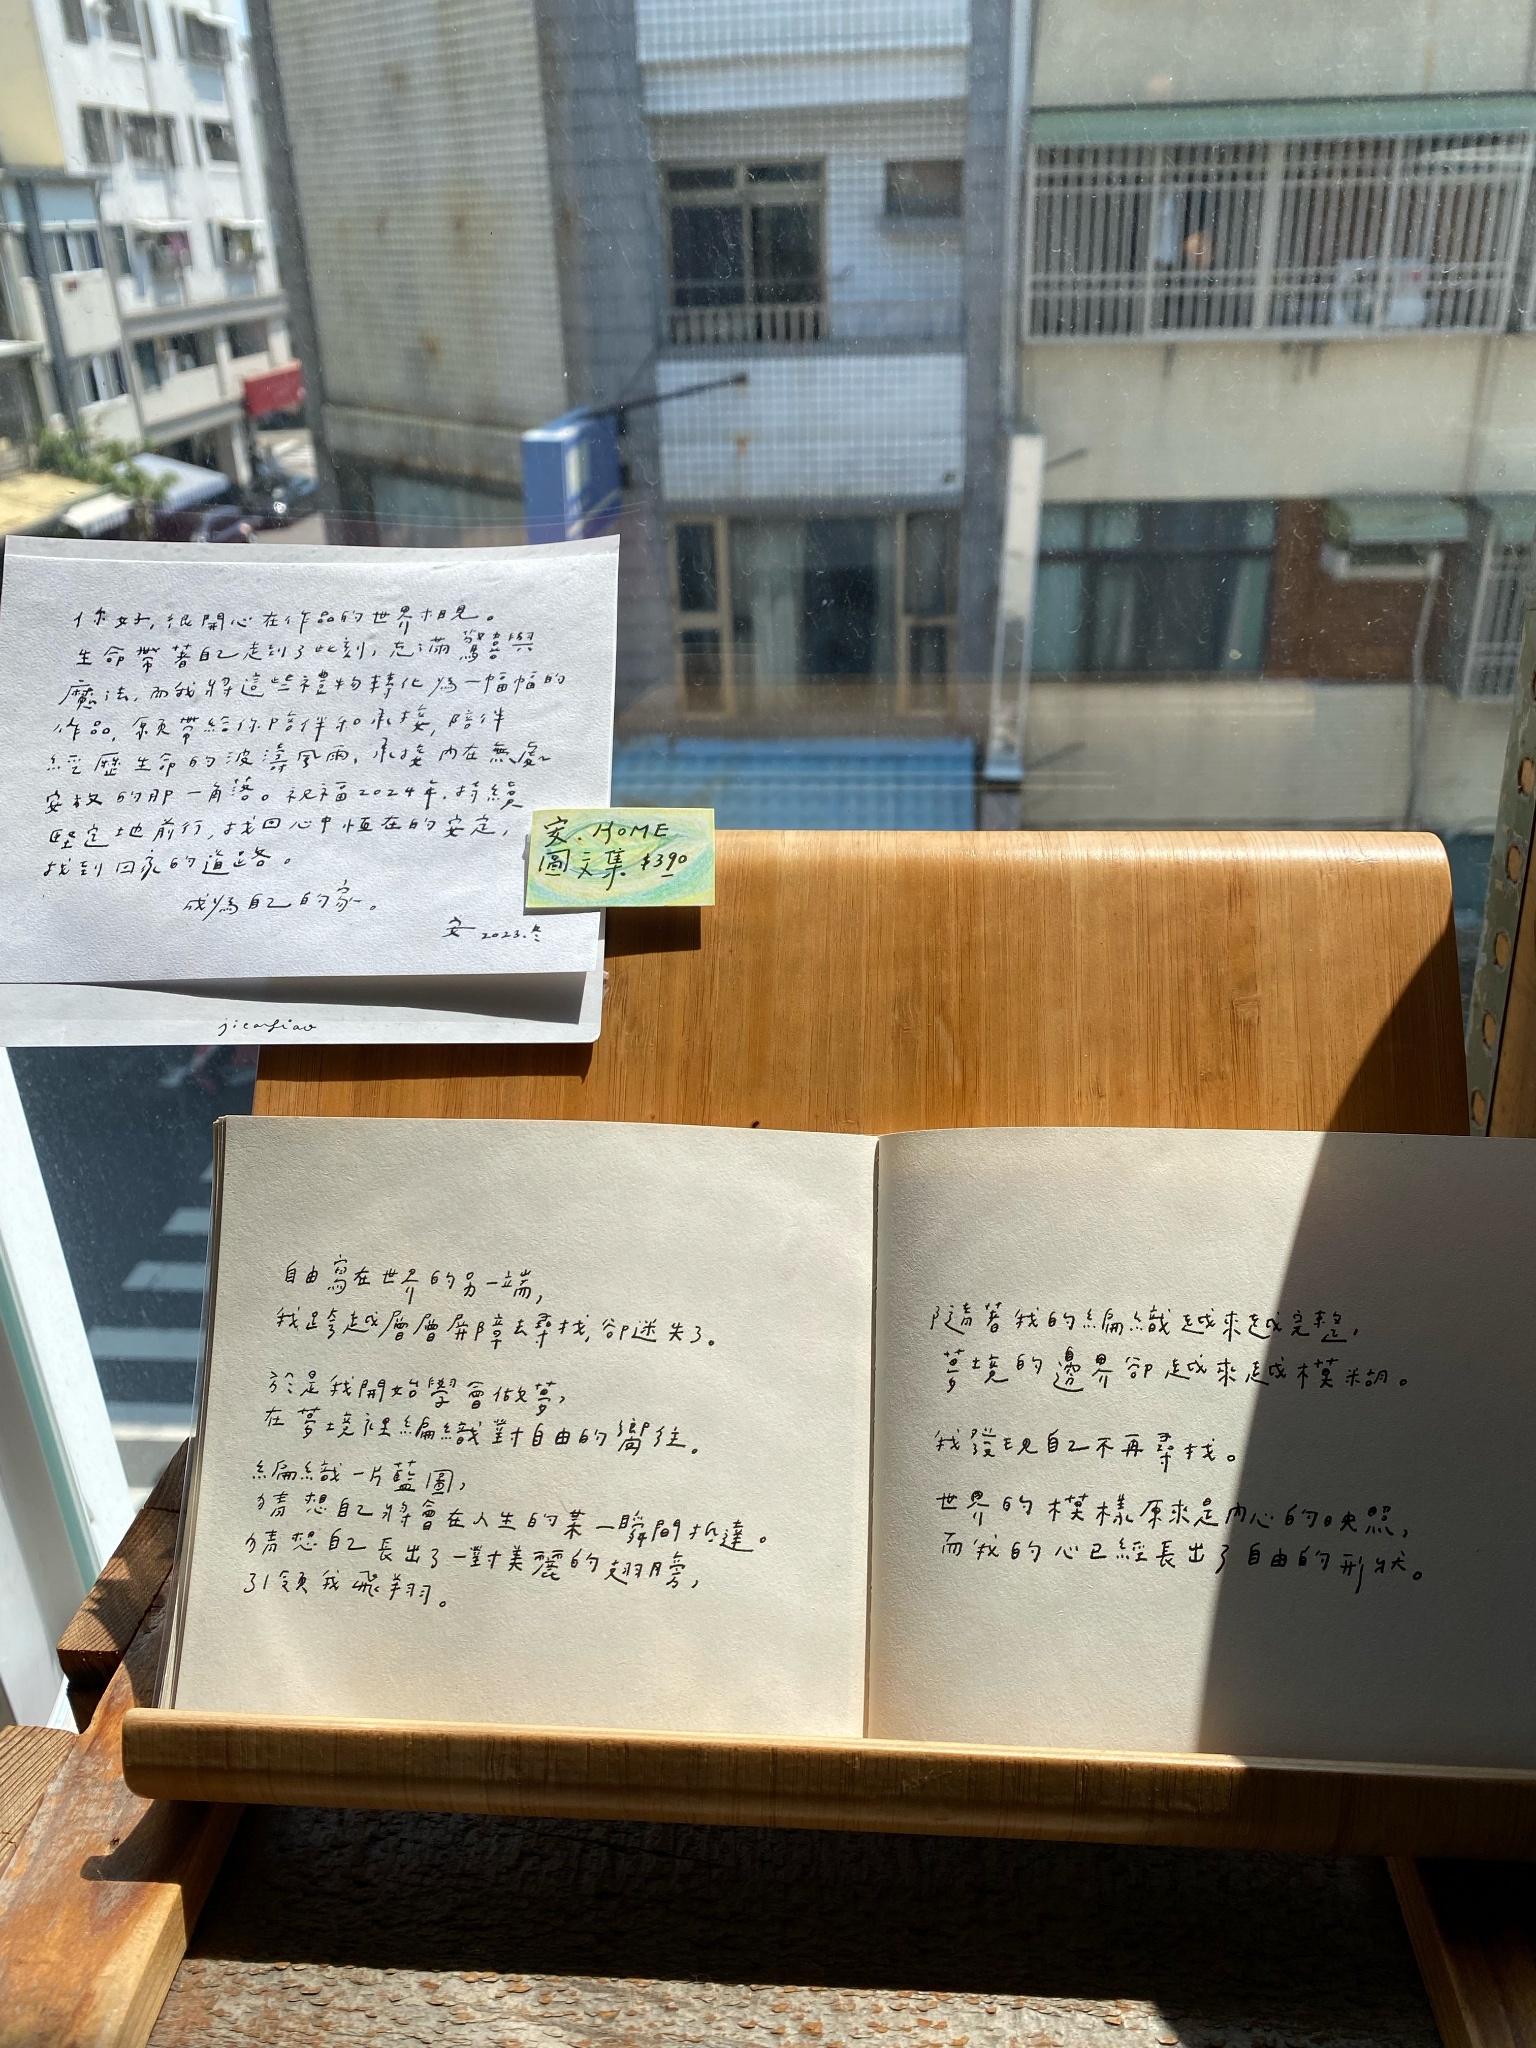 你好，很開心在作品的世界相見。
生命帶著自己走到了此刻，充滿驚喜與
魔法，而我將這些禮物轉化為一幅幅的
作品，願帶給你陪伴和承接，陪伴
經歷生命的波濤風雨，承接內在無處
安放的那一角落。祝福2024年，持續
堅定地前行，找回心中恆在的安定，
找到回家的道路。
成為自己的家。
安 2023.冬
安.HOME
圖文集 $390
自由寫在世界的另一端，
我跨越層層屏障去尋找，卻迷失了。
於是我開始學會做夢，
在夢境裡編織對自由的嚮往。
編織一片藍圖，
猜想自己將會在人生的某一瞬間抵達。
猜想自己長出了一對美麗的翅膀，
引領我飛翔。
隨著我的編織越來越完整，
夢境的邊界卻越來越模糊。
我發現自己不再尋找。
世界的模樣原來是內心的映照，
而我的心已經長出了自由的形狀。